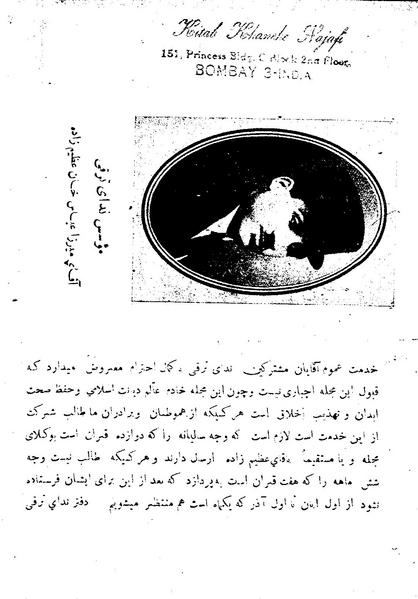 Kitab Khaneh Najafi
151, Princess Bldg. C Block 2nd Floor,
BOMBAY 3-INDIA
مؤسس ندای ترقی
آقای میرزا عباس خان عظیم زاده
خدمت عموم آقایان مشترکین ندای ترقی بکمال احترام معروض میدارد که
قبول این مجله اجباری نیست و چون این مجله خادم عالم دیانت اسلامی و حفظ صحت
ابدان و تهذیب اخلاق است هر کسیکه از هموطنان و برادران ما طالب شرکت
از این خدمت است لازم است که وجه سالیانه را که دوازده قران است بوکلای
مجله و یا مستقیماً بآقای عظیم زاده ارسل دارند و هر کسیکه طالب نیست وجه
شش ماهه را که هفت قران است به پردازد که بعد از این برای ایشان فرستاده
نشود از اول ابان تا اول آذر که یکماه است هم منتظر میشویم دفتر ندای ترقی